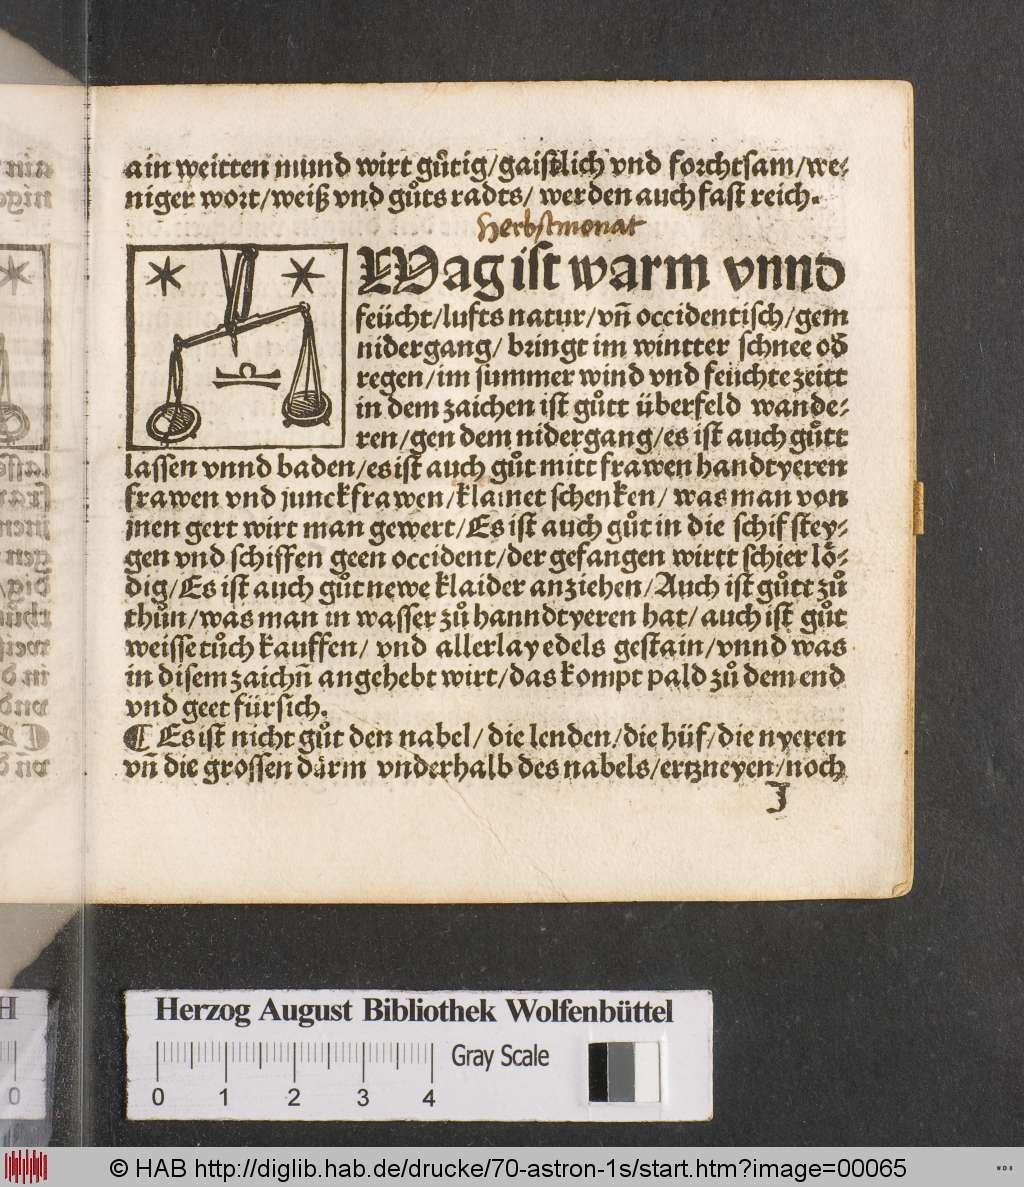 ain weitten mund wirt gůtig/gaistlich vnd forchtsam/we⸗
niger wort/weiß vnd gůts radts/ werden auch fast reich.
Herbstmonat
WAag ist warm vnnd
feücht/lufts natur/vñ occidentisch/gem
nidergang/ bringt im wintter schnee od̄
regen/im summer wind vnd feüchte zeitt
in dem zaichen ist gůtt überfeld wande⸗
ren/gen dem nidergang/es ist auch gůtt
lassen vnnd baden/es ist auch gůt mitt frawen handtyeren
frawen vnd junckfrawen/klainet schencken/ was man von
jnen gert wirt man gewert/Es ist auch gůt in die schif stey⸗
gen vnd schiffen geen occident/der gefangen wirtt schier lö⸗
dig/Es ist auch gůt newe klaider anziehen/Auch ist gůtt zů
thůn/was man in wasser zů hanndtyeren hat/auch ist gůt
weisse tůch kauffen/ vnd allerlay edels gestain/vnnd was
in disem zaichñ angehebt wirt/das kompt pald zů dem end
vnd geet für sich.
¶ Es ist nicht gůt den nabel/die lenden/die hüf/die nyeren
vñ die grossen därm vnderhalb des nabels/ertzneyen/noch
J
Herzog August Bibliothek Wolfenbüttel
Gray Scale
0 1 2 3 4
© HAB http://diglib.hab.de/drucke/70-astron-1s/start.htm?image=00065